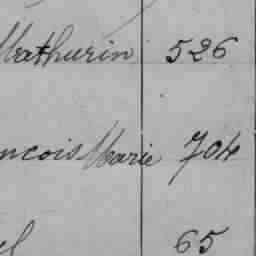 Mathurin 526
ncois Marie 704
el 65